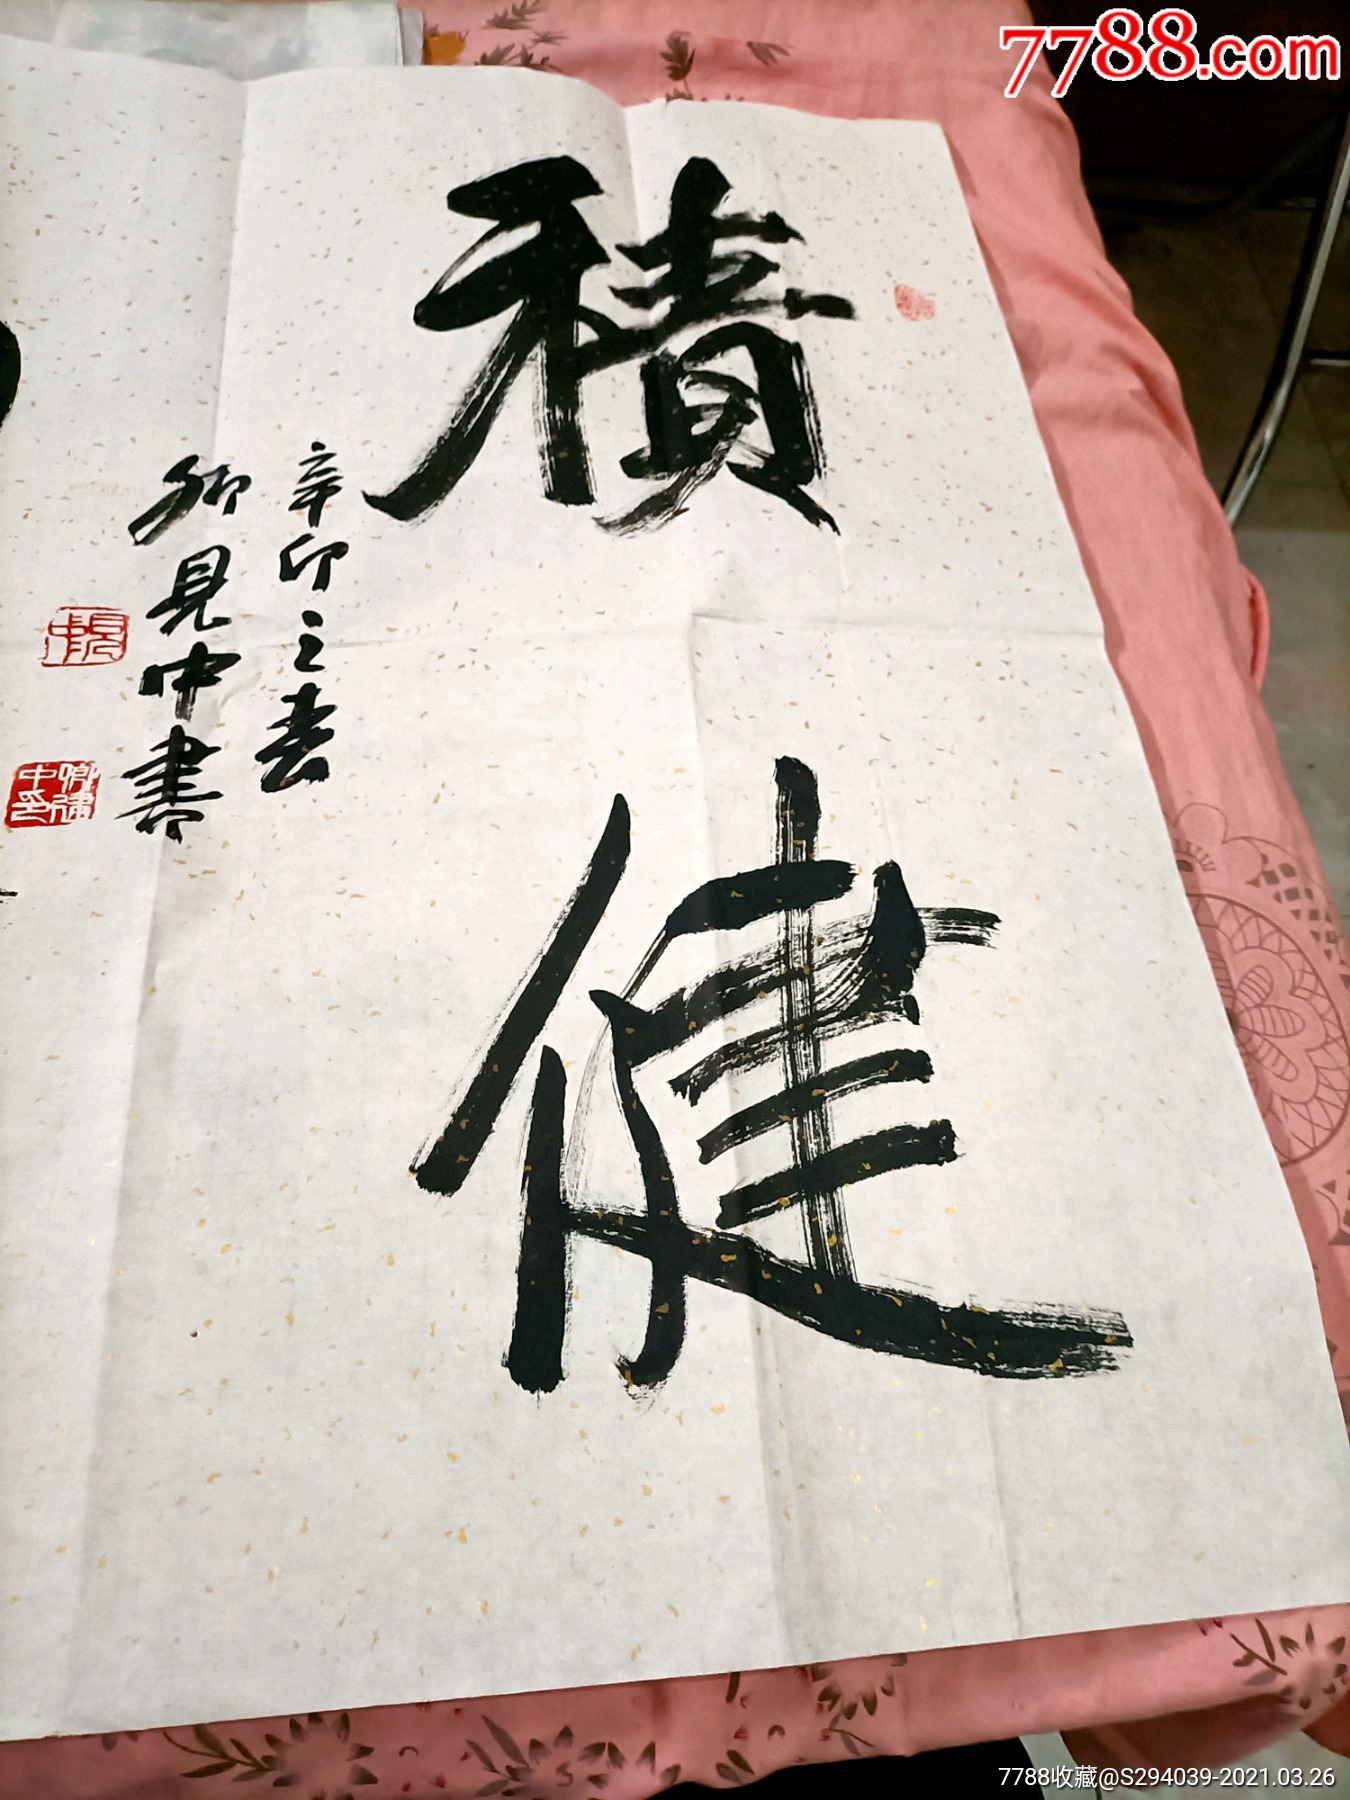 7788.com
積健
辛卯之春
卿見中書
7788收藏@S294039-2021.03.26